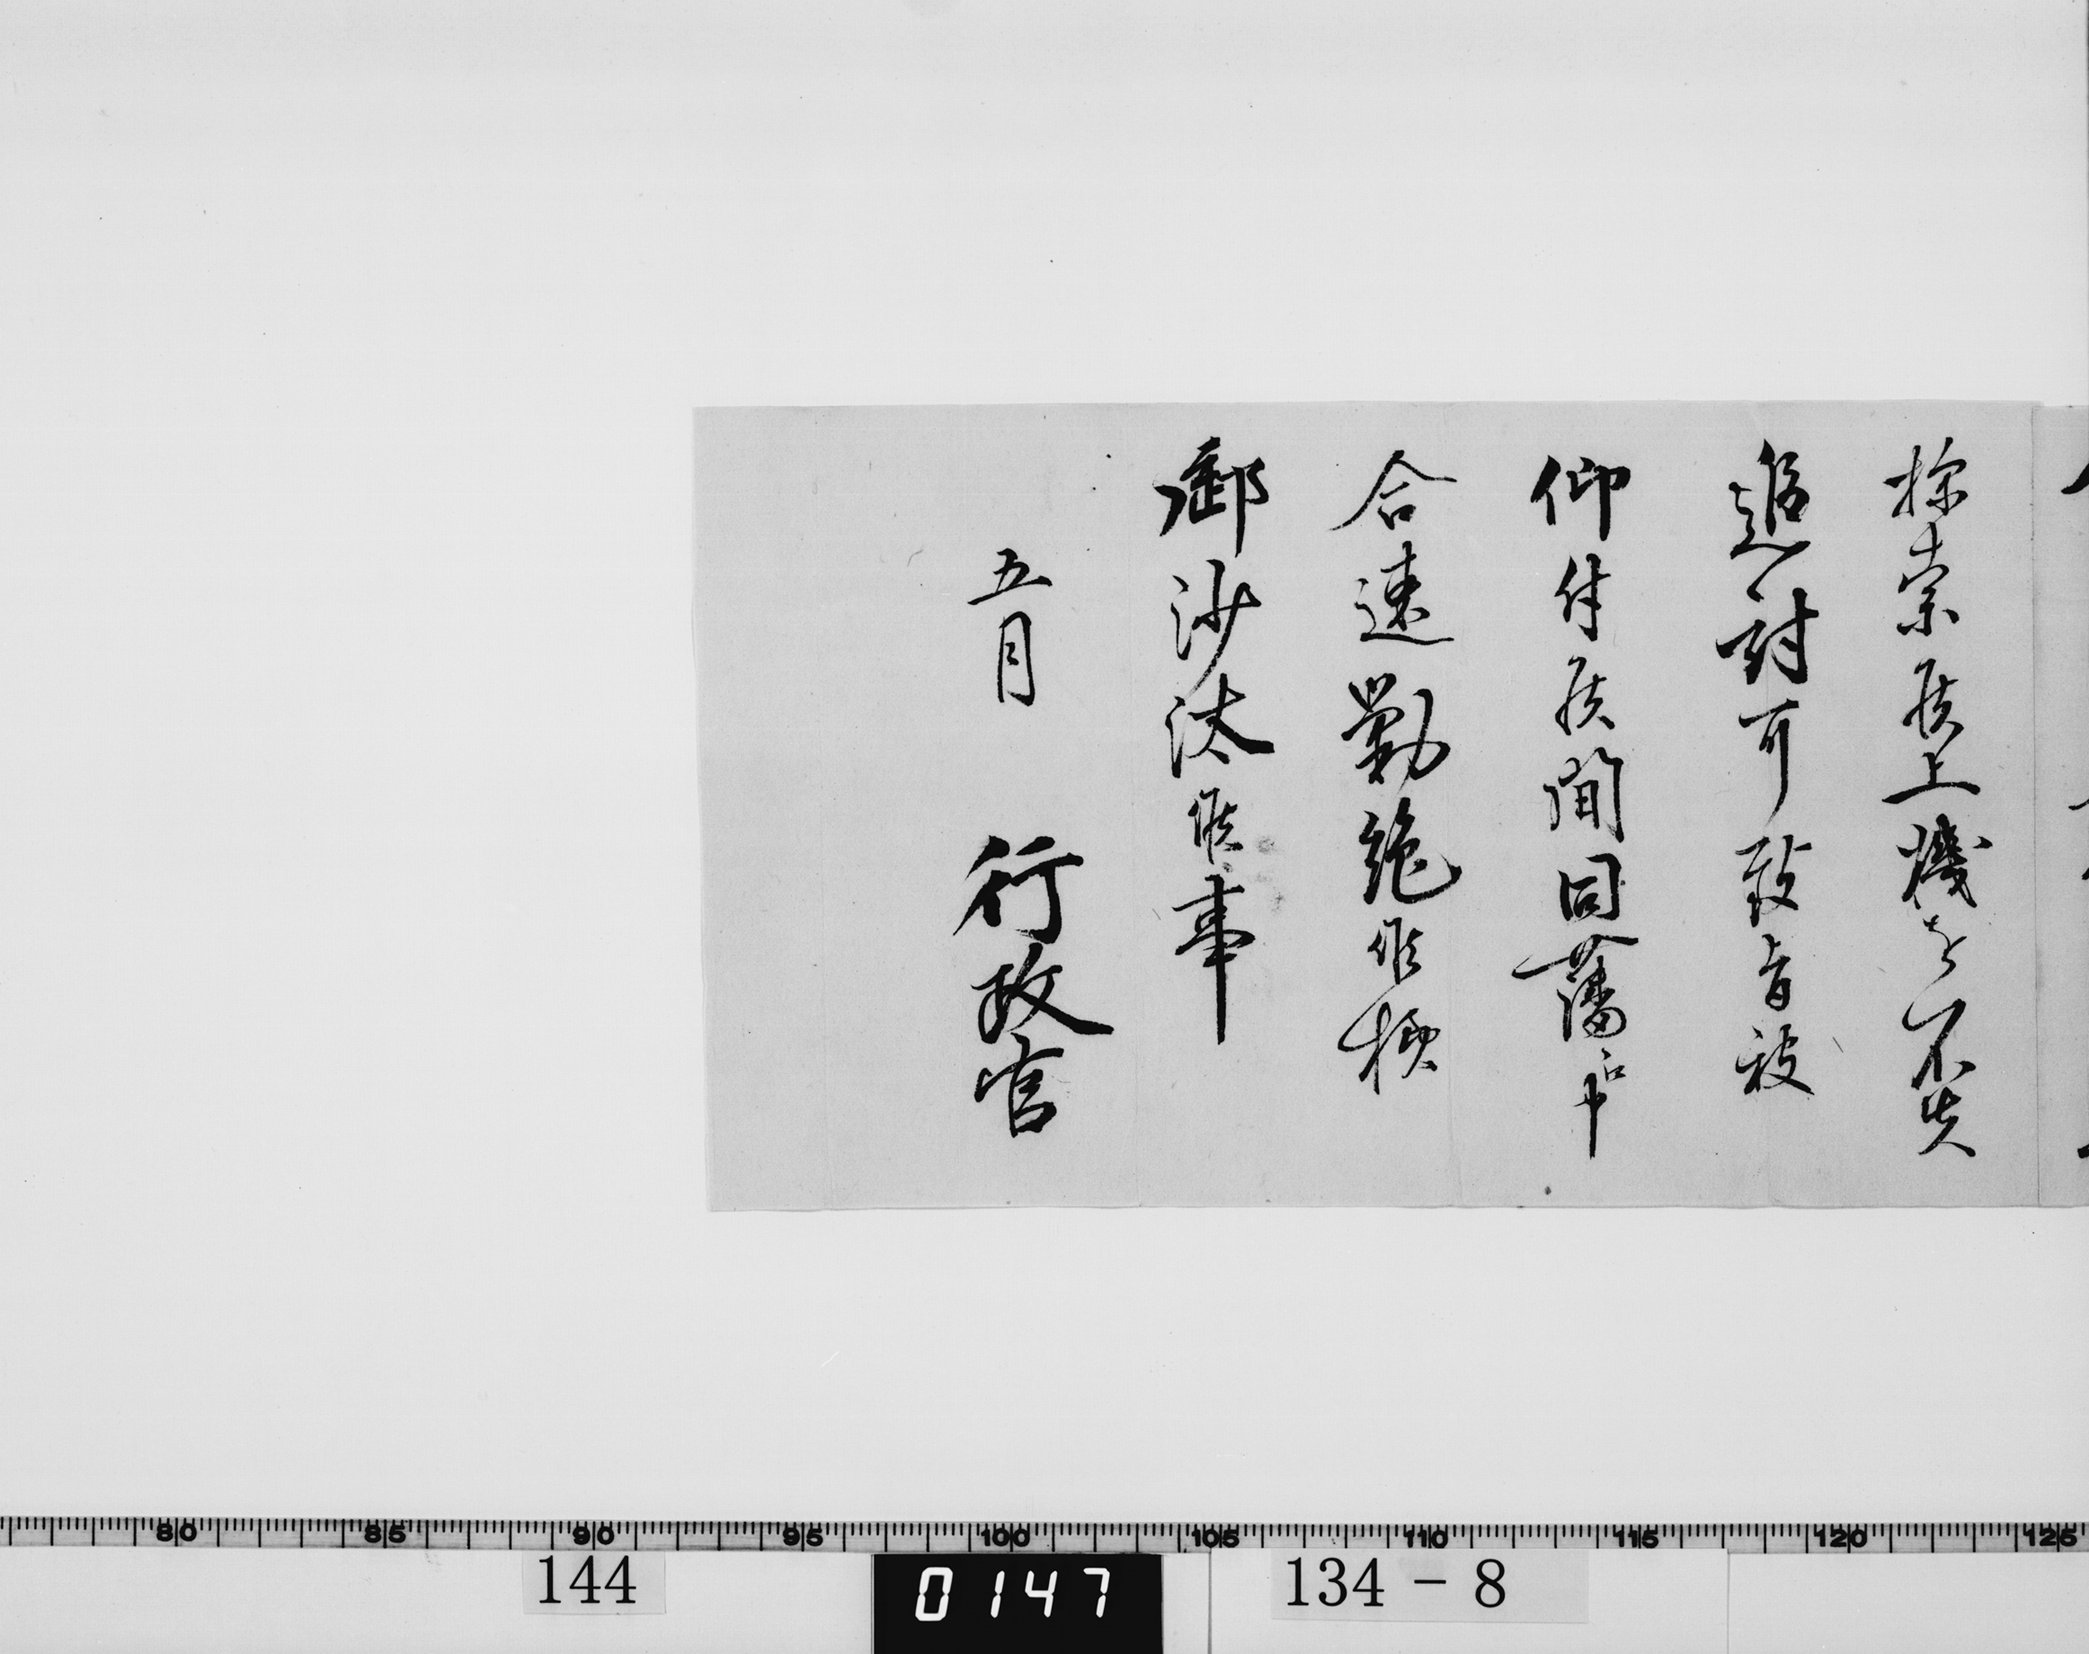 探索候上機を不失
追討可致旨被
仰付候間同藩申
合速勦絶候様
御沙汰候事
五月
行政官
80 85 90 95 100 105 110 115 120 125
144
0147
134-8